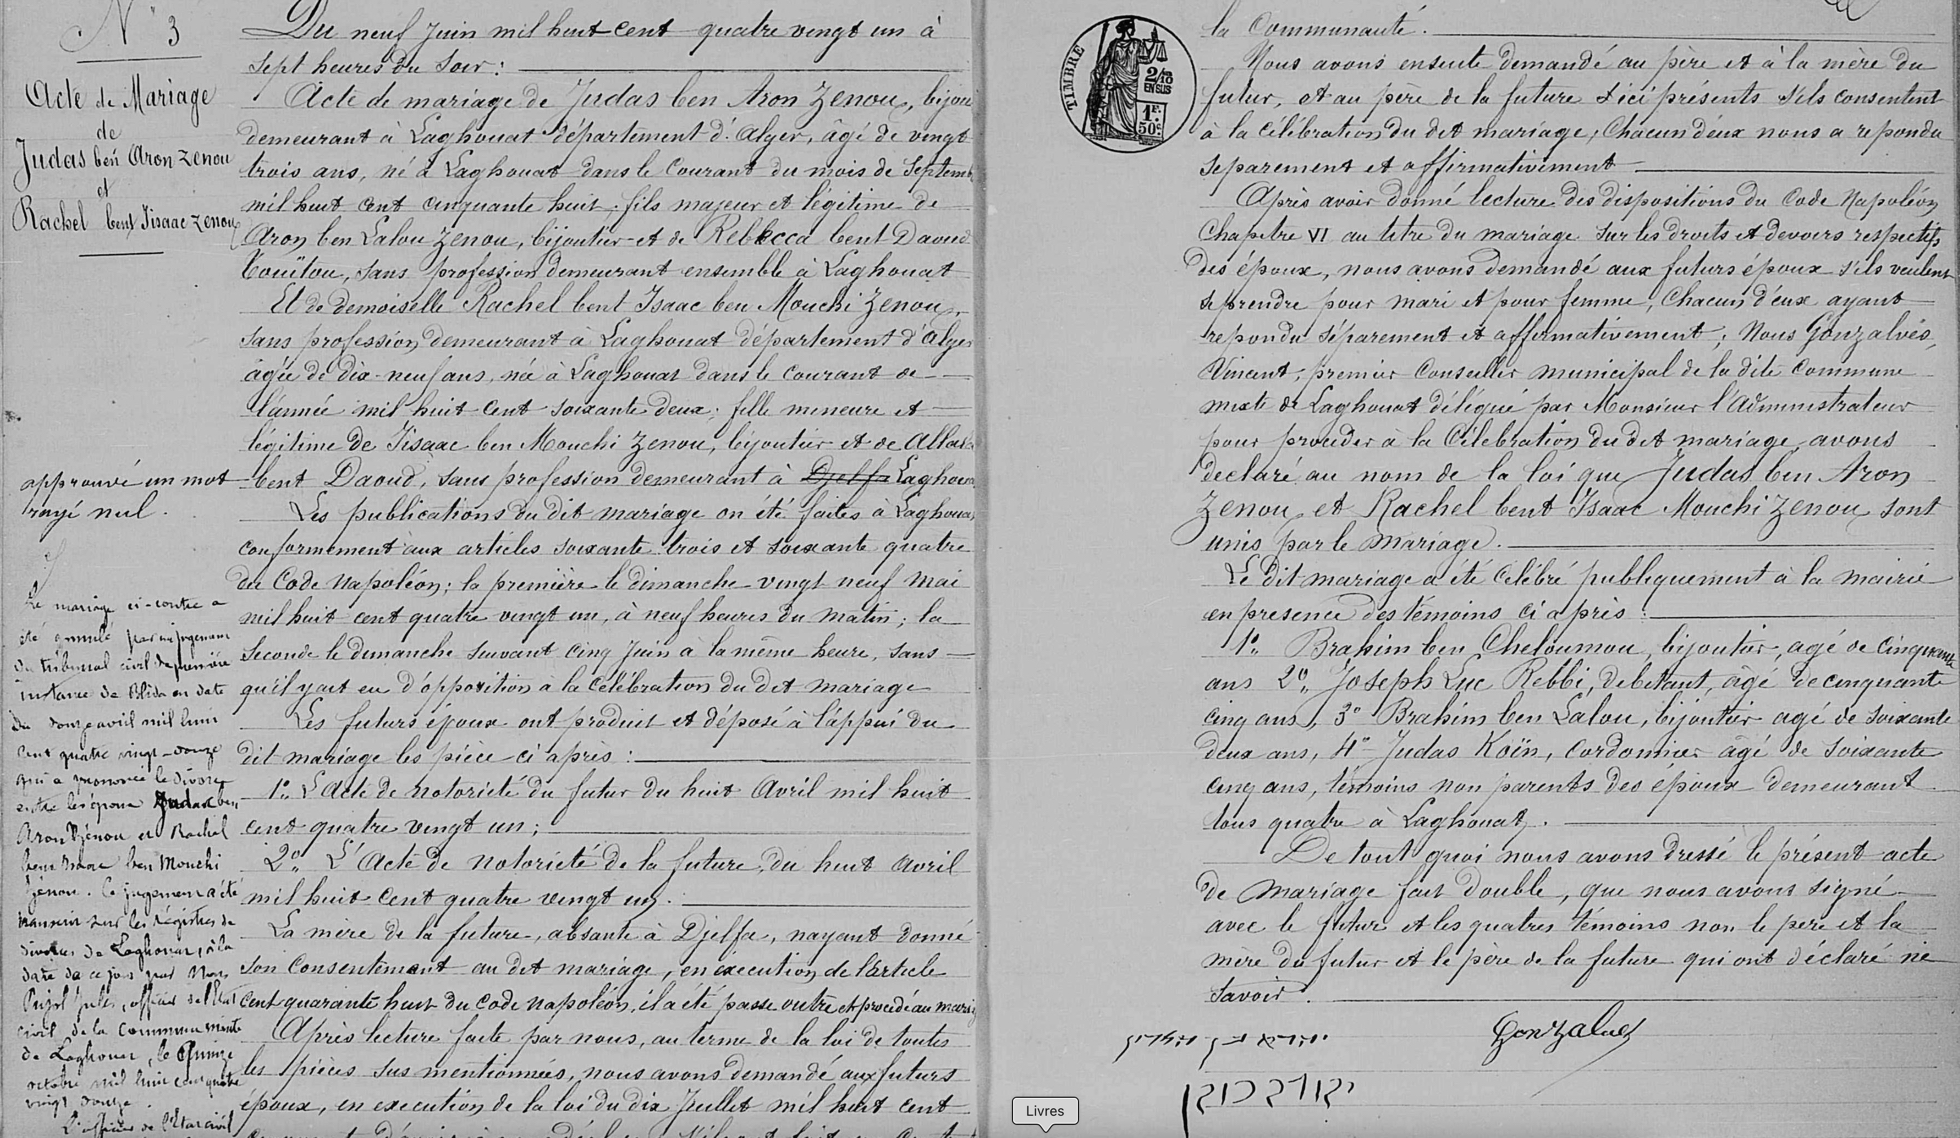 N° 3
Acte de Mariage
de
Judas ben Aron Zenou
et
Rachel bent Iisaac Zenou
approuvé un mot
rayé nul.
Le mariage ci-contre a
été annulé par un jugement
du tribunal civil de première
instance de Blida en date
du douze avril mil huit
cent quatre vingt-douze
qui a prononcé le divorce
entre les époux Judas ben
Aron Zénou et Rachel
bent Isaac ben Mouchi
Zénou. Ce jugement a été
transcrit sur les registres de
divorces de Laghouat, à la
date de ce jour par Nous
Pujol Jules, officier de l'Etat
civil de la Commune mixte
de Laghouat, le Quinze
octobre mil huit cent quatre
vingt douze.
L'officier de l'Etat civil
Du neuf Juin mil huit cent quatre vingt un à
sept heures du Soir :
Acte de mariage de Judas ben Aron Zenou, bijou
demeurant à Laghouat département d'Alger, âgé de vingt
trois ans, né à Laghouat dans le Courant du mois de Septemb
mil huit cent cinquante huit ; fils majeur et légitime de
Aron ben Lalou Zenou, bijoutier et de Rebbecca bent Daoud
Touitou, sans profession demeurant ensemble à Laghouat
Et de demoiselle Rachel bent Isaac ben Mouchi Zenou,
sans profession demeurant à Laghouat département d'Alger
âgée de dix-neuf ans, née à Laghouat dans le courant de
l'année mil huit cent soixante deux ; fille mineure et
légitime de Iisaac ben Mouchi Zenou, bijoutier et de
bent Daoud, sans profession demeurant à Djelfa Laghoua
Les publications du dit mariage on été faites à Laghouat
conformement aux articles soixante trois et soixante quatre
du Code Napoléon ; la première le dimanche vingt neuf Mai
mil huit cent quatre vingt un, à neuf heures du matin ; la
seconde le dimanche suivant cinq Juin à la même heure, sans
qu'il y ait eu d'opposition à la célébration du dit mariage
Les futurs époux ont produit et déposé à l'appui du
dit mariage les pièce ci après :
1° L'Acte de notoriété du futur du huit Avril mil huit
cent quatre vingt un ;
2° L'Acte de notoriété de la future, du huit avril
mil huit cent quatre vingt un.
La mère de la future, absante à Djelfa, nayant donné
son Consentement au dit mariage, en éxecution de l'article
Cent quarante huit du Code Napoléon, il a été passe outre et procédé au maria
Après lecture faite par nous, au terme de la loi de toutes
les pièces sus mentionnées, nous avons demandé aux futurs
époux, en execution de la loi du dix Juillet mil huit cent
la Communauté.
TIMBRE
2/10
EN SUS
1F.
50c
Nous avons ensuite demandé au père et à la mère du
futur, et au père de la future ici présents s'ils consentent
à la célébration du dit mariage, Chacun d'eux nous a repondu
separement et affirmativement
Après avoir donné lecture des dispositions du Code Napoléon
Chapitre VI au titre du mariage sur les droits et devoirs respectifs
des époux, nous avons demandé aux futurs époux s'ils veulent
se prendre pour mari et pour femme, Chacun d'eux ayant
repondu séparement et affirmativement ; Nous Gonzalvés,
Vincent, premier Conseiller municipal de la dite commune
mixte de Laghouat délégué par Monsieur l'Administrateur
pour proceder à la Célebration du dit mariage avons
declaré au nom de la loi que Judas ben Aron
Zenou et Rachel bent Isaac Mouchi Zenou sont
unis par le mariage.
Le dit mariage a été Célébré publiquement à la mairie
en presence des témoins ci après :
1° Brahim ben Cheloumou, bijoutier, agé de cinquante
ans 2° Joseph Luc Rebbi, debitant, âgé de cinquante
cinq ans, 3° Brahim ben Lalou, bijoutier agé de soixante
deux ans, 4° Judas Koïn, Cordonnier âgé de soixante
cinq ans, témoins non parents des époux demeurant
tous quatre à Laghouat.
De tout quoi nous avons dressé le présent acte
de mariage fait double, que nous avons signé
avec le futur et les quatres témoins non le père et la
mère du futur et le père de la future qui ont déclaré ne
savoir.
Gonzalves
Livres